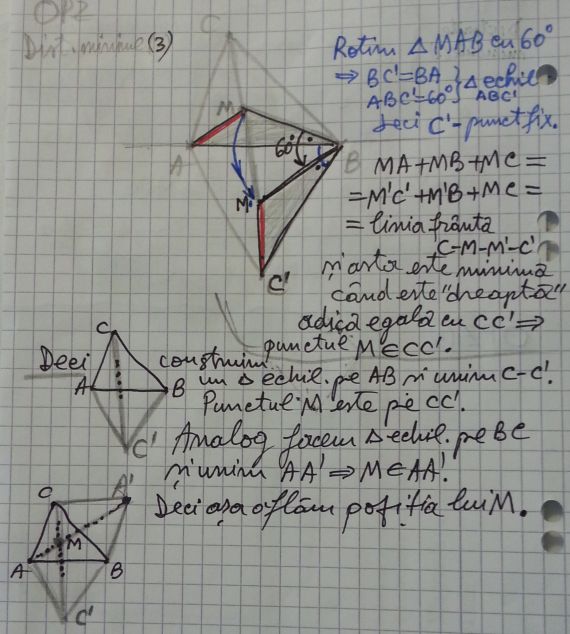 OPZ
Dist. minime (3)
Rotim △ MAB cu 60°
⇒ BC'=BA } △ echil
ABC'=60° } ABC'
deci C'-punct fix.
C
M
A
60°
B
M'
C'
MA+MB+MC=
=M'C'+M'B+MC=
= linia frântă
C-M-M'-C'
și asta este minimă
când este "dreaptă"
adică egală cu CC' ⇒
punctul M∈CC'.
Deci construim
un △ echil. pe AB și unim C-C'.
Punctul M este pe CC'.
C
A
B
C'
Analog facem △ echil. pe BC
și unim AA' ⇒ M∈AA'.
Deci așa aflăm poziția lui M.
C
A'
M
A
B
C'